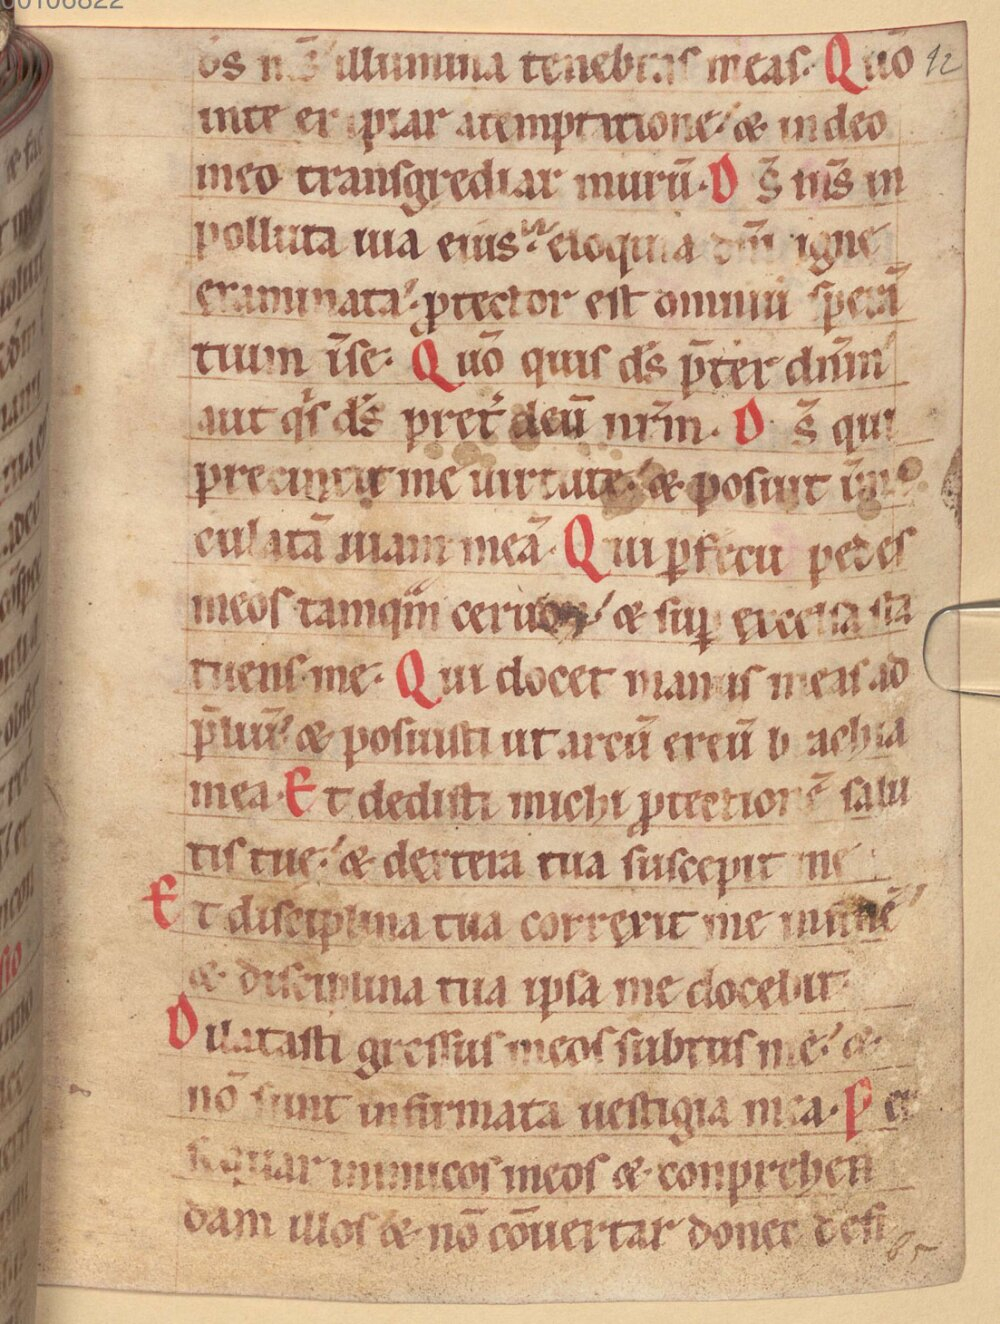 00106822
ds ms̄ illumina tenebras meas. Quō 12
in te eripiar a temptatione. & in deo
meo transgrediar murū. Ds̄ ms̄ in
polluta uia eius. eloquia dn̄i igne
examinata. ꝓtector est omniū sperā
tium ī se. Quō quis ds̄ p̄ter dn̄m
aut qͥs ds̄ pret̾ deū nr̄m. Ds̄ qui
precinxit me uirtute. & posuit īm
culatā uiam meā. Qui ꝑfecit pedes
meos tamqͣm ceruor. & suꝑ excelsa sta
tuens me. Qui docet manus meas ad
p̄liū. & posuisti ut arcū ereū b achia
mea. Et dedisti michi ꝓtectionē salu
tis tue. & dextera tua suscepit me
Et disciplina tua correxit me in finē
& disciplina tua ipsa me docebit
Dilatasti gressus meos subtus me. &
nō sunt infirmata uestigia mea. Per
sequar inimicos meos & conprehen
dam illos & nō cōuertar donec defi